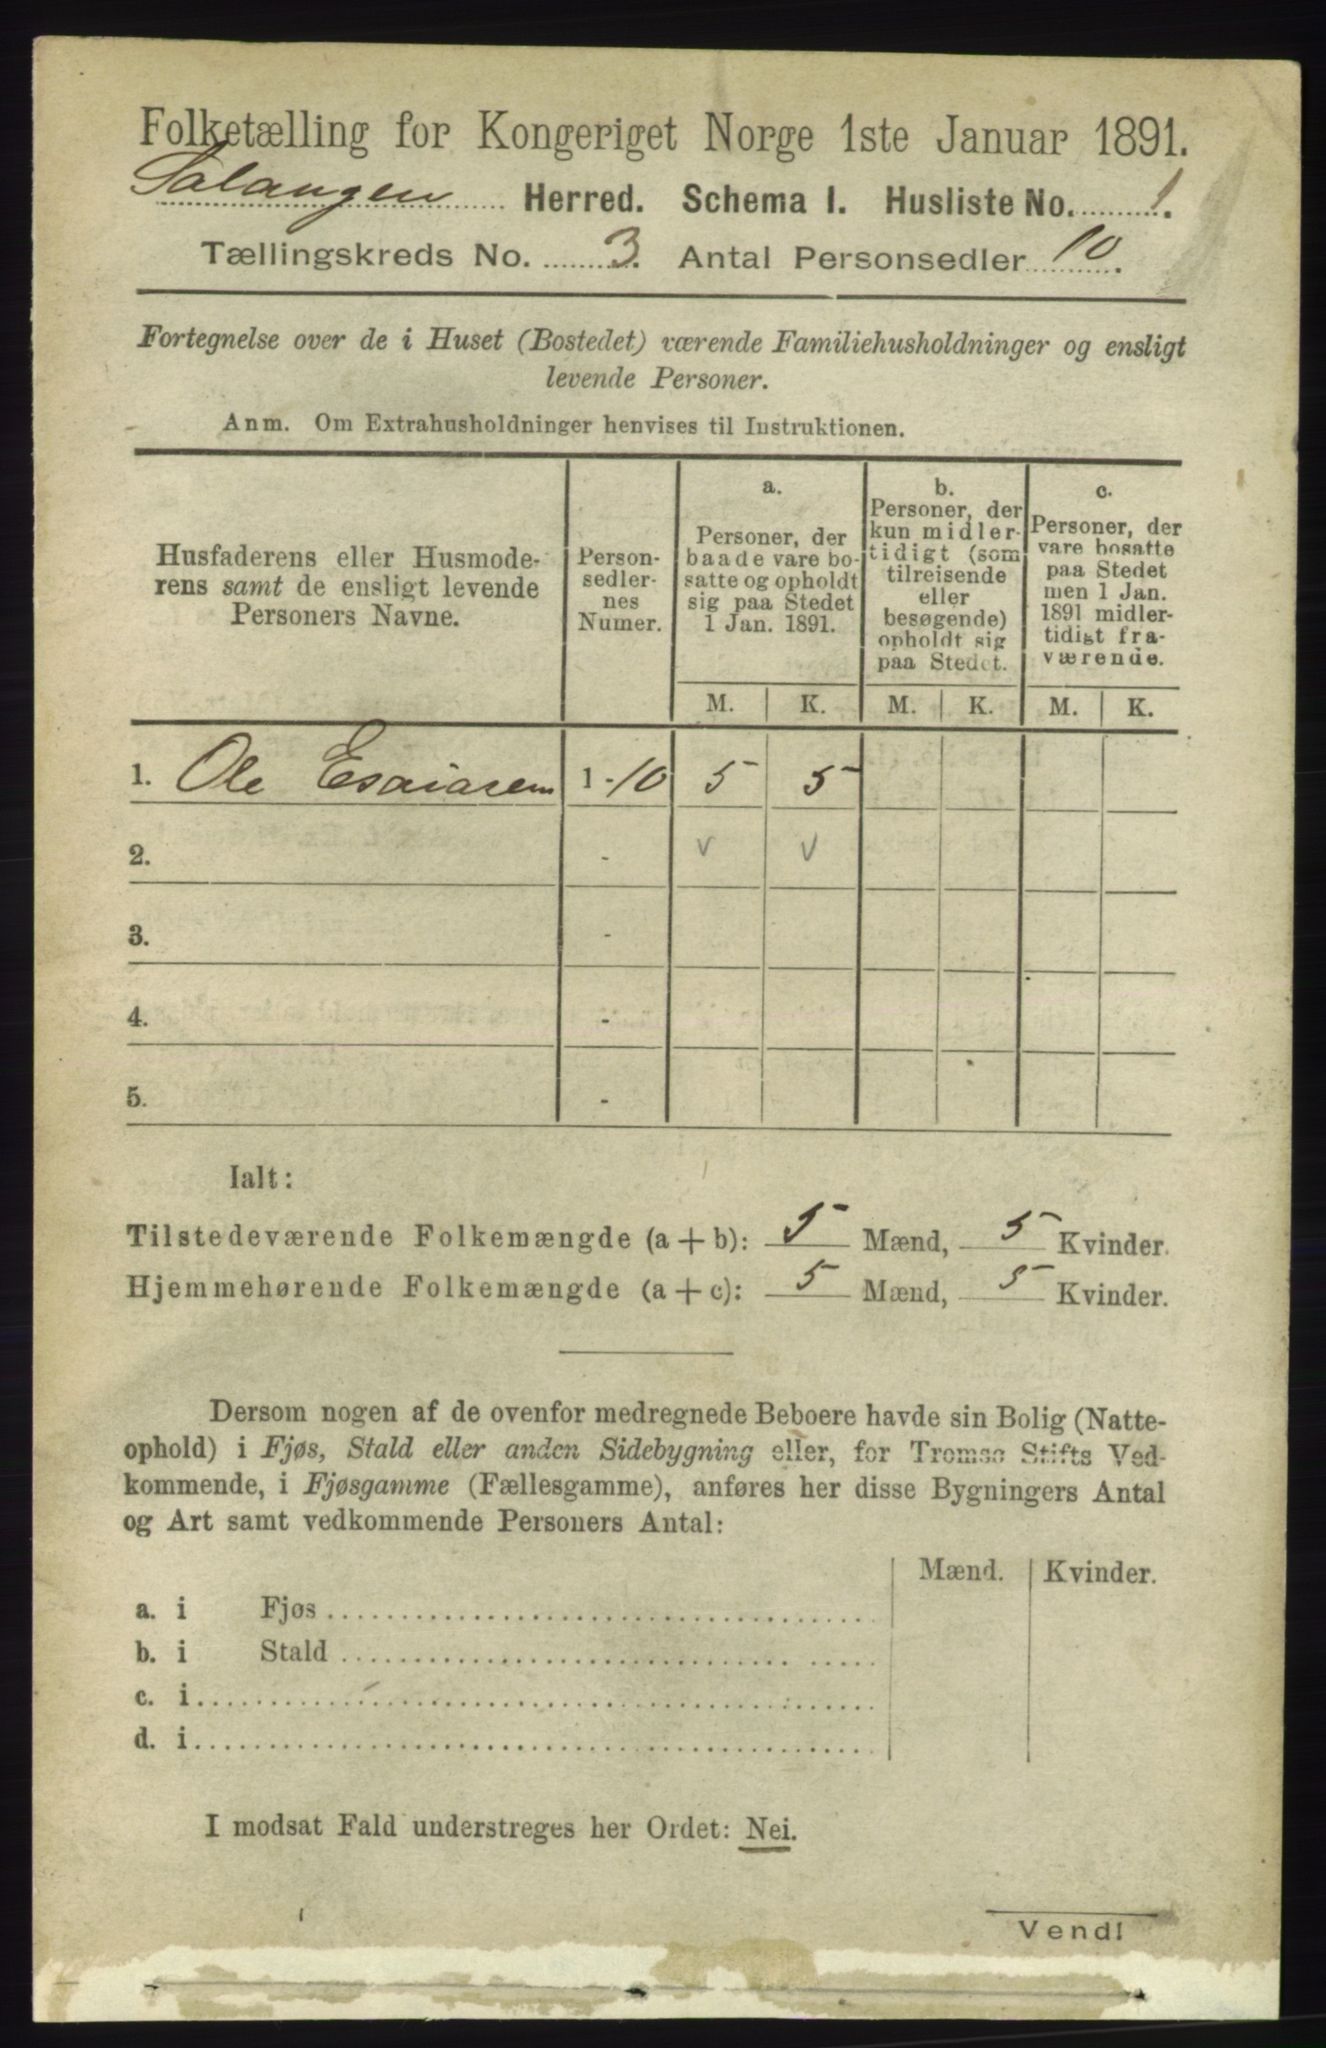 Folketælling for Kongeriget Norge 1ste Januar 1891.
Salangen Herred. Schema I. Husliste No. 1.
Tællingskreds No. 3. Antal Personsedler 10.
Fortegnelse over de i Huset (Bostedet) værende Familiehusholdninger og ensligt
levende Personer.
Anm. Om Extrahusholdninger henvises til Instruktionen.
Husfaderens eller Husmode-
rens samt de ensligt levende
Personers Navne.
Person-
sedler-
nes
Numer.
a.
Personer, der
baade vare bo-
satte og opholdt
sig paa Stedet
1 Jan. 1891.
b.
Personer, der
kun midler-
tidigt (som
tilreisende
eller
besøgende)
opholdt sig
paa Stedet.
c.
Personer, der
vare bosatte
paa Stedet
men 1 Jan.
1891 midler-
tidigt fra-
værende.
M. K. M. K. M. K.
1. Ole Esaiasen 1 - 10 5 5
2. - v v
3. -
4. -
5. -
Ialt:
Tilstedeværende Folkemængde (a + b): 5 Mænd, 5 Kvinder.
Hjemmehørende Folkemængde (a + c): 5 Mænd, 5 Kvinder.
Dersom nogen af de ovenfor medregnede Beboere havde sin Bolig (Natte-
ophold) i Fjøs, Stald eller anden Sidebygning eller, for Tromsø Stifts Ved-
kommende, i Fjøsgamme (Fællesgamme), anføres her disse Bygningers Antal
og Art samt vedkommende Personers Antal:
Mænd. Kvinder.
a. i Fjøs
b. i Stald
c. i
d. i
I modsat Fald understreges her Ordet: Nei.
Vend!